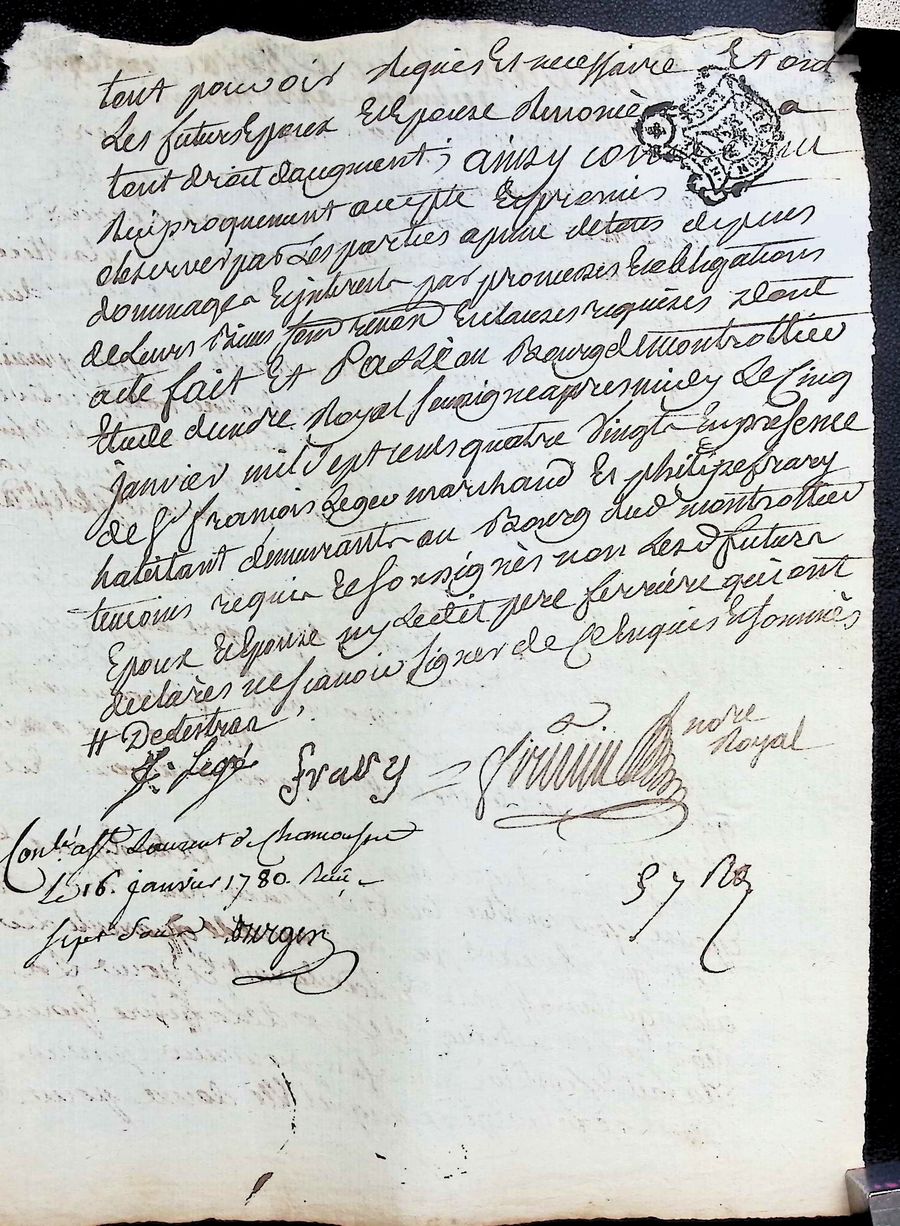 tout pouvoir requis Et necessaire Et ont
Les futurs Epoux Et Epouze Renoncé a
tout droit daugment; ainsy con
Reciproquement accepté Et promis
observer par Les parties a peine de tous depens
dommages Et jnterets par promesses Et obligations
de Leurs Biens Et clauses requises dont
acte fait Et Passé au Bourg de montrottier
Etude du nore Royal soussigné apres midy Le Cinq
janvier mil sept cents quatre Vingts En presence
de Sr françois Legeo marchand Et philipe frary
habitant demeurants au Bourg dud montrottier
temoins requis Et soussignés non Lesd futurs
Epoux Et Epouze ny Ledit pere ferriere qui ont
declarés ne scavoir signer de Ce Enquis Et sommés
f. Legeo frary nore
Royal
Conlé. a St. Laurent de Chamousset
Le 16. janvier 1780. Reçu
sept sous Durger